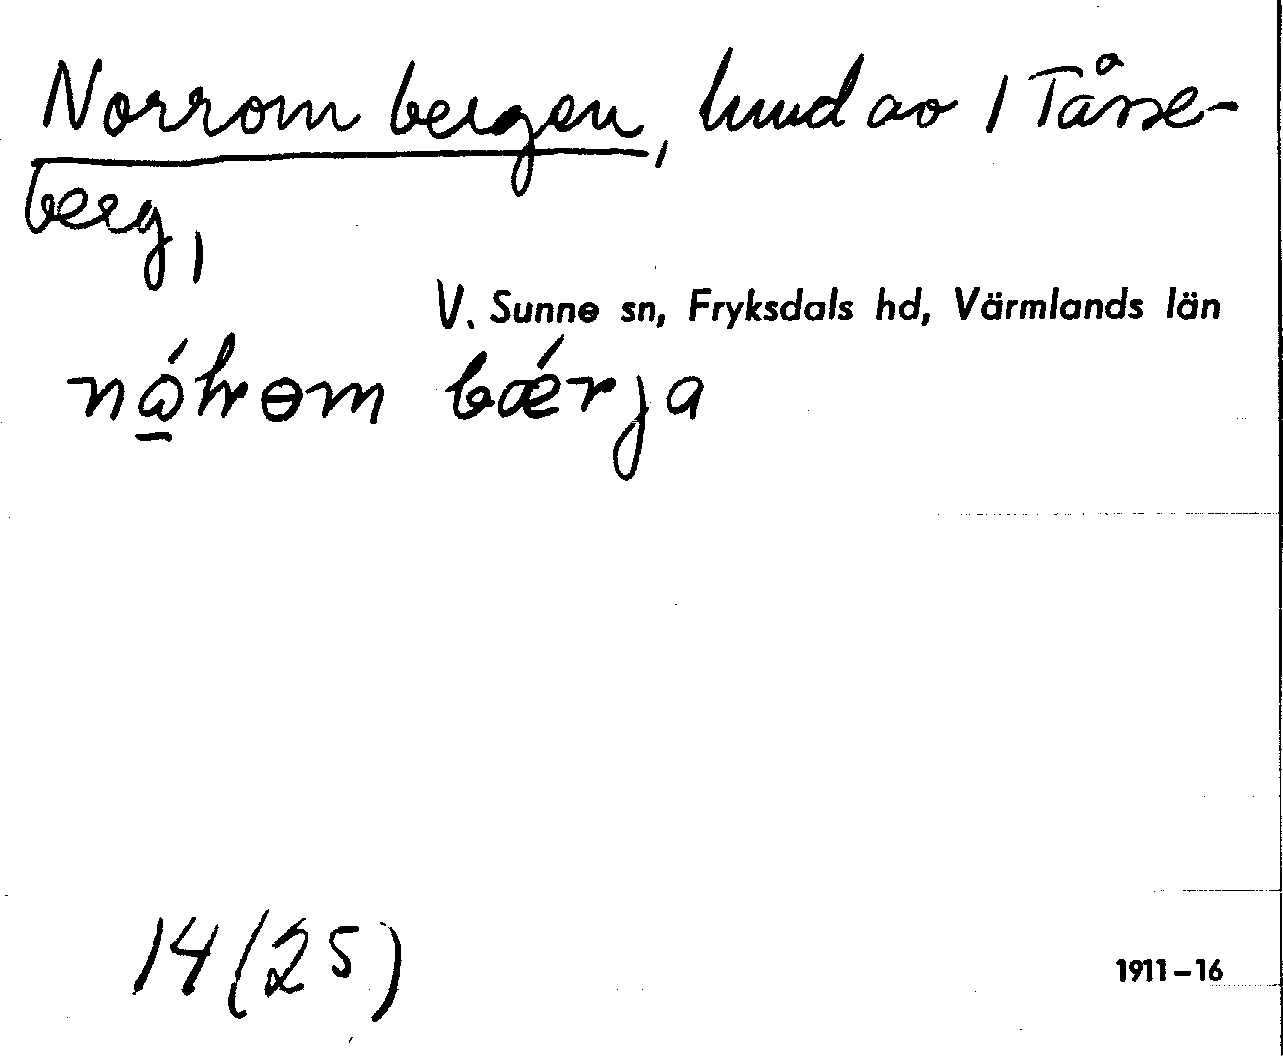 Norrom bergen, hmd av 1 Tåsse-
berg,
V. Sunne sn, Fryksdals hd, Värmlands län
bǽrja
14(25)
1911–16